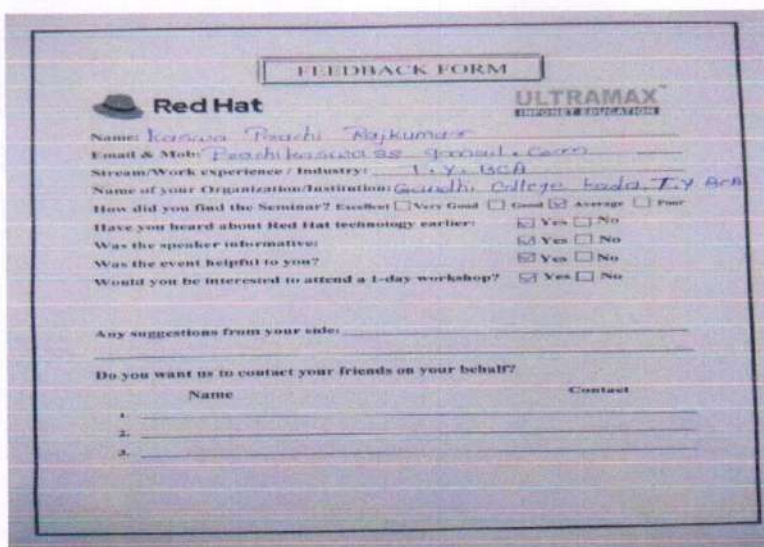 FEEDBACK FORM
Red Hat
ULTRAMAX™
INFONET EDUCATION
Name: Kaswa Prachi Rajkumar
Email & Mob: Prachikaswa38 gmail.com
Stream/Work experience / Industry: T.Y. BCA
Name of your Organization/Institution: Gandhi College kada, T.Y BCA
How did you find the Seminar? Excellent ☐ Very Good ☐ Good ☑ Average ☐ Poor
Have you heard about Red Hat technology earlier: ☑ Yes ☐ No
Was the speaker informative: ☑ Yes ☐ No
Was the event helpful to you? ☑ Yes ☐ No
Would you be interested to attend a 1-day workshop? ☑ Yes ☐ No
Any suggestions from your side:
Do you want us to contact your friends on your behalf?
Name Contact
1.
2.
3.